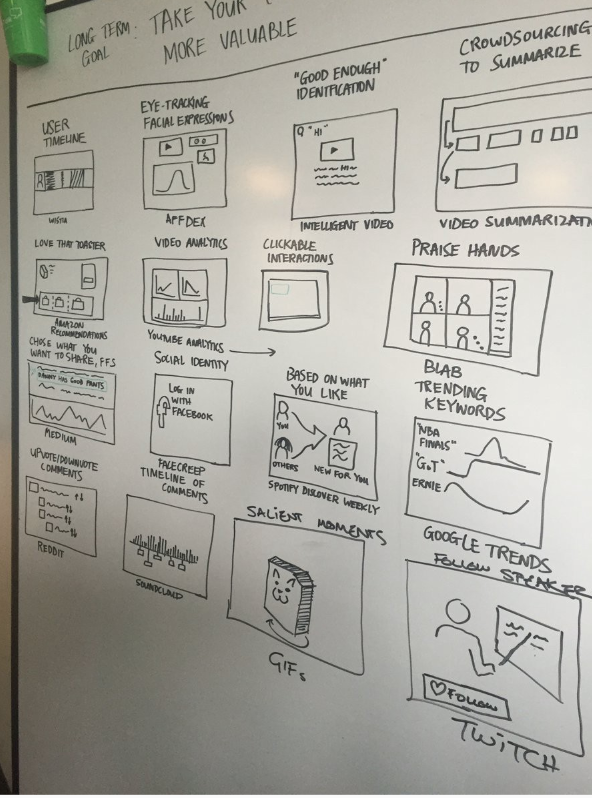 LONG TERM:
GOAL
TAKE YOUR
MORE VALUABLE
USER
TIMELINE
WISTIA
EYE-TRACKING
FACIAL EXPRESSIONS
APFDEX
"GOOD ENOUGH"
IDENTIFICATION
Q "HI"
HI
INTELLIGENT VIDEO
CROWDSOURCING
TO SUMMARIZE
VIDEO SUMMARIZAT
LOVE THAT TOASTER
AMAZON
RECOMMENDATIONS
VIDEO ANALYTICS
YOUTUBE ANALYTICS
CLICKABLE
INTERACTIONS
PRAISE HANDS
BLAB
CHOSE WHAT YOU
WANT TO SHARE, FFS
DANNY HAS GOOD PANTS
MEDIUM
SOCIAL IDENTITY
LOG IN
WITH
FACEBOOK
FACECREEP
BASED ON WHAT
YOU LIKE
YOU
OTHERS
NEW FOR YOU
SPOTIFY DISCOVER WEEKLY
TRENDING
KEYWORDS
"NBA
FINALS"
"GoT"
ERNIE
GOOGLE TRENDS
UPVOTE/DOWNVOTE
COMMENTS
REDDIT
TIMELINE OF
COMMENTS
SOUNDCLOUD
SALIENT MOMENTS
GIFs
FOLLOW SPEAKER
FOLLOW
TWITCH